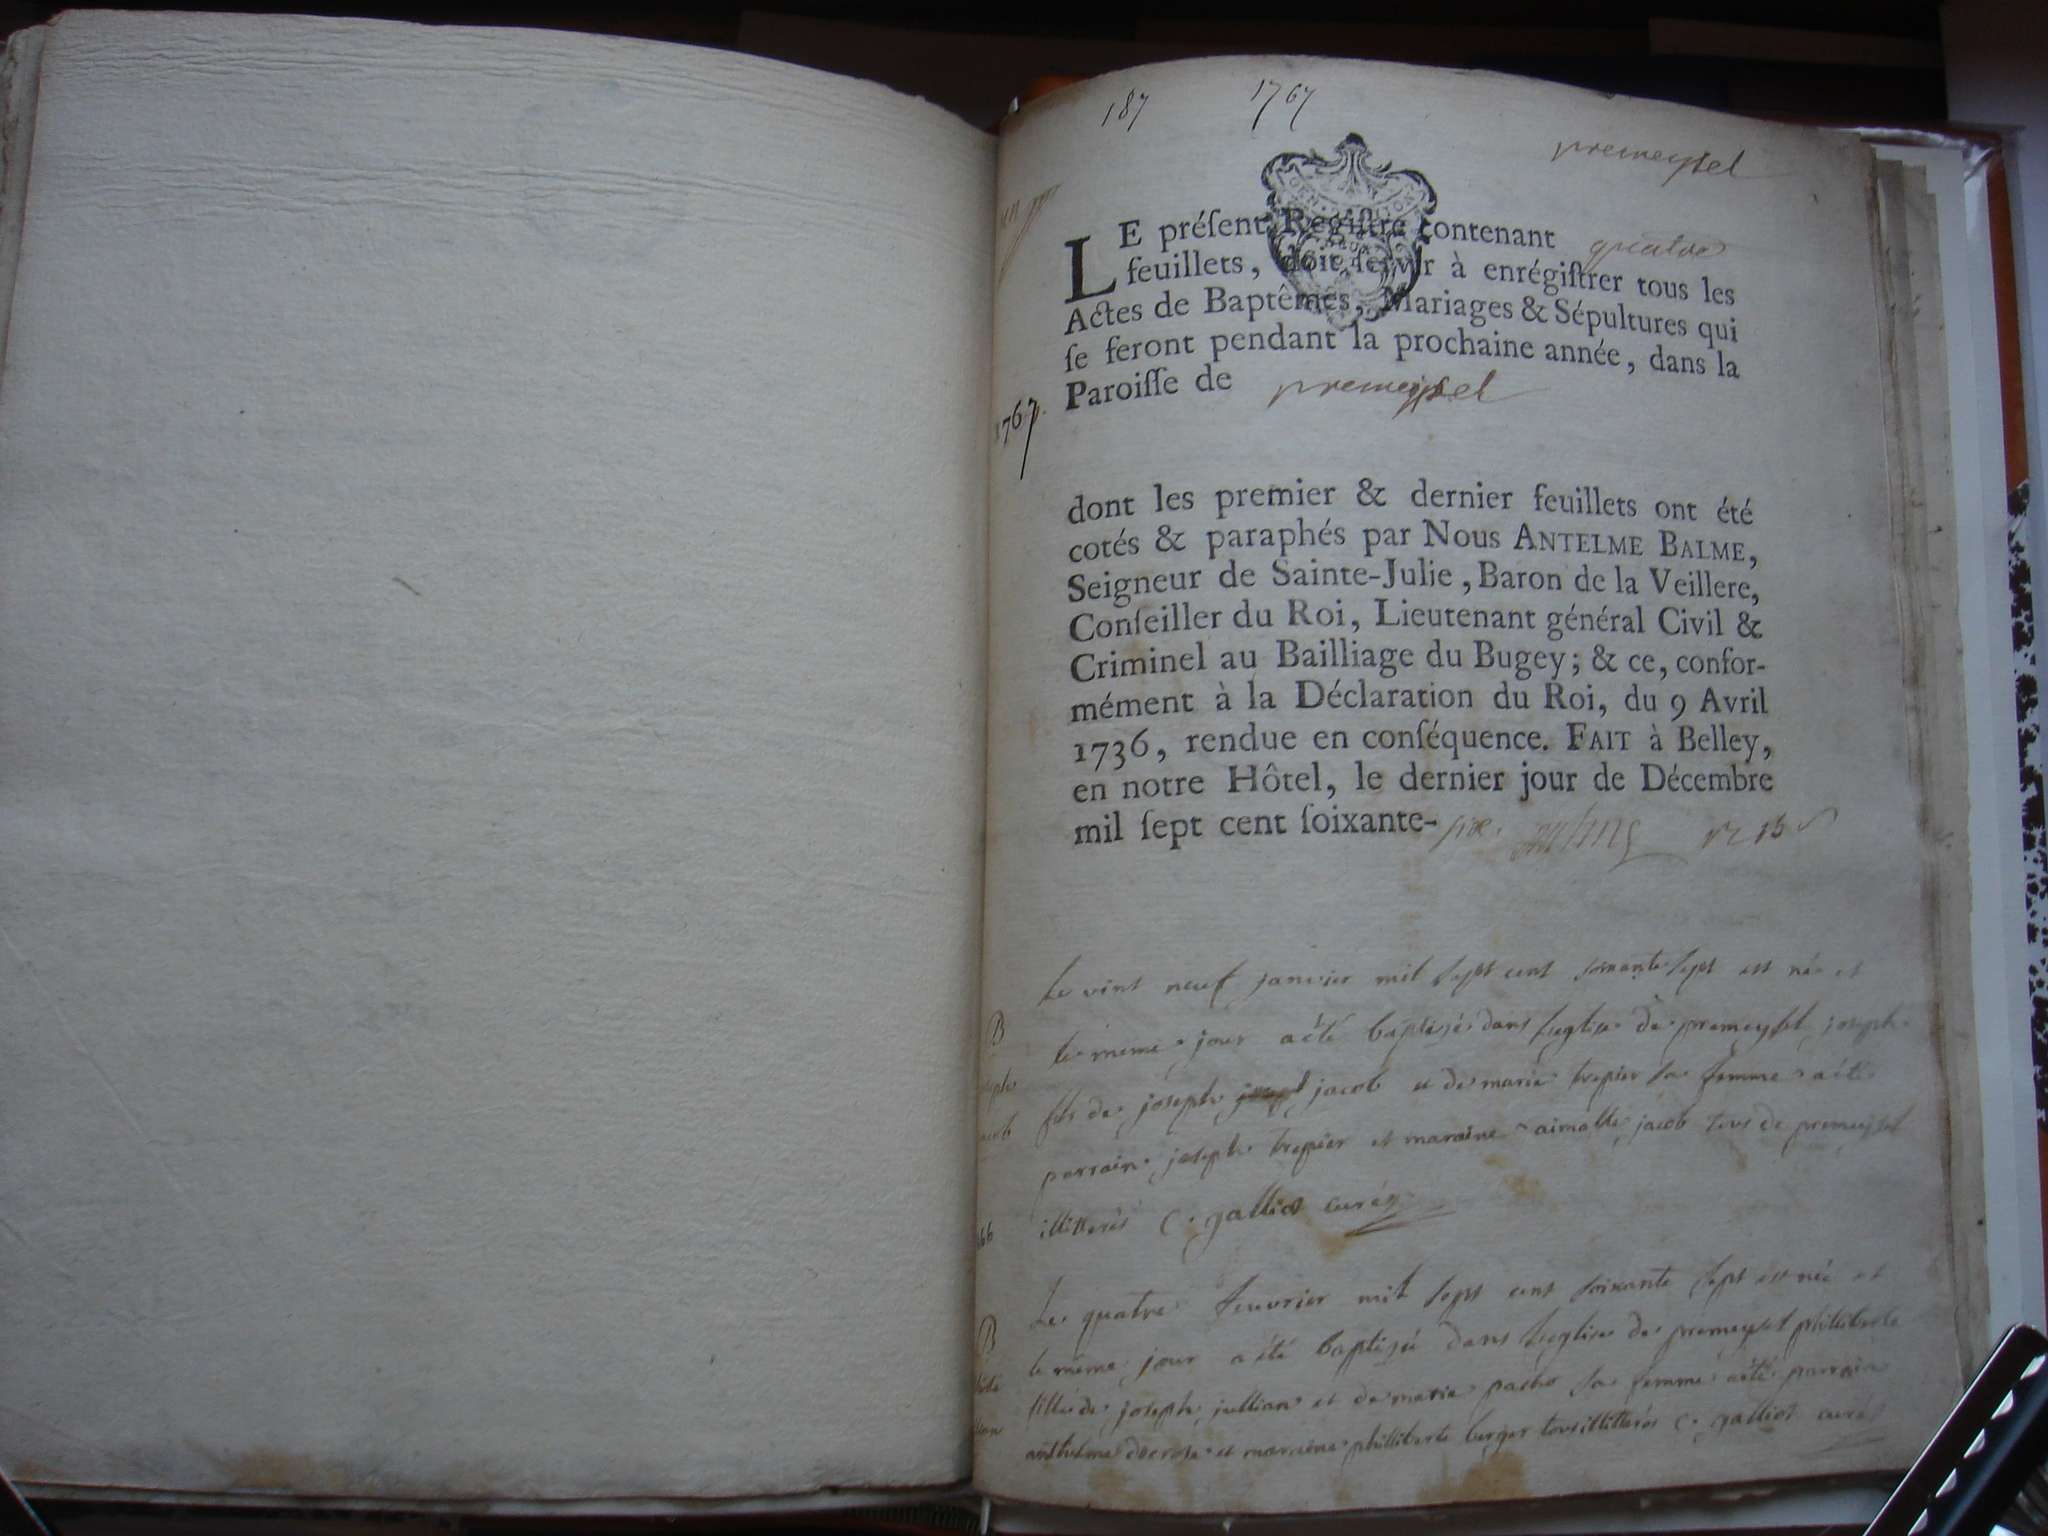 187 1767
premeysel
LE préſent Regiſtre contenant quatre
feuillets, doit ſervir à enrégiſtrer tous les
Actes de Baptêmes, Mariages & Sépultures qui
ſe feront pendant la prochaine année, dans la
Paroiſſe de premeyſel
1767
dont les premier & dernier feuillets ont été
cotés & paraphés par Nous ANTELME BALME,
Seigneur de Sainte-Julie, Baron de la Veillere,
Conſeiller du Roi, Lieutenant général Civil &
Criminel au Bailliage du Bugey; & ce, confor-
mément à la Déclaration du Roi, du 9 Avril
1736, rendue en conſéquence. FAIT à Belley,
en notre Hôtel, le dernier jour de Décembre
mil ſept cent ſoixante-six.
Le vint neuf janvier mil sept cent soixante sept est né et
B
le meme jour a été baptisé dans leglise de premeyssel joseph
fils de joseph jacob et de marie trepier sa femme a été
parrain joseph trepier et maraine aimable jacob tous de premeyssel
illitterés C. galliot curé
Le quatre feuvrier mil sept cent soixante sept est née et
B
le même jour a été baptisée dans leglise de premeyssel philliberte
fille de joseph jullian et de marie pacho sa femme a été parrain
anthelme et maraine philliberte berger tous illitterés C. galliot curé